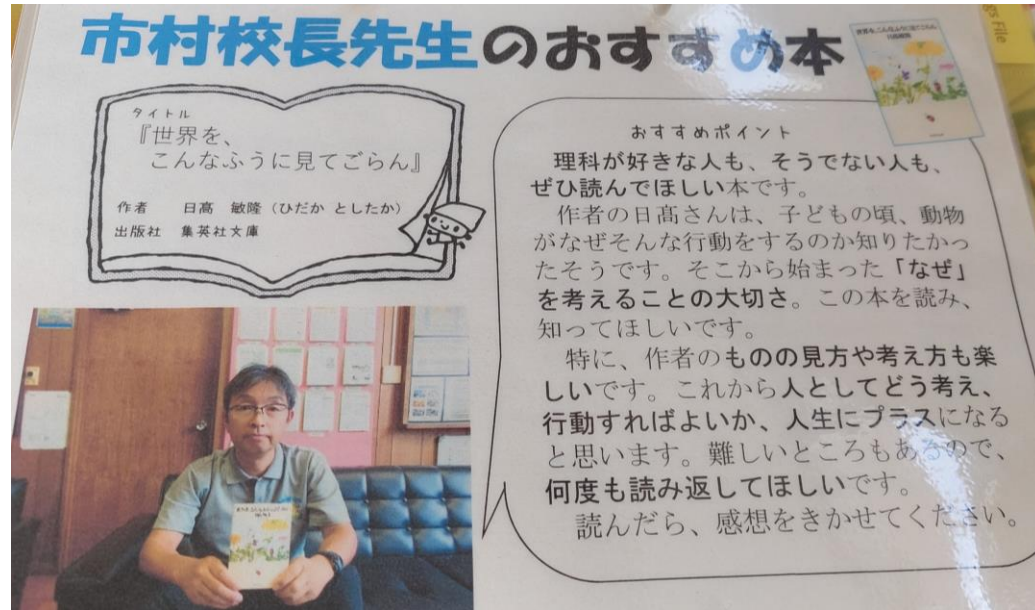 市村校長先生のおすすめ本
タイトル
『世界を、
こんなふうに見てごらん』
作者 日髙 敏隆（ひだか としたか）
出版社 集英社文庫
おすすめポイント
理科が好きな人も、そうでない人も、
ぜひ読んでほしい本です。
作者の日髙さんは、子どもの頃、動物
がなぜそんな行動をするのか知りたかっ
たそうです。そこから始まった「なぜ」
を考えることの大切さ。この本を読み、
知ってほしいです。
特に、作者のものの見方や考え方も楽
しいです。これから人としてどう考え、
行動すればよいか、人生にプラスになる
と思います。難しいところもあるので、
何度も読み返してほしいです。
読んだら、感想をきかせてください。
世界を、こんなふうに見てごらん
日髙敏隆
gs File